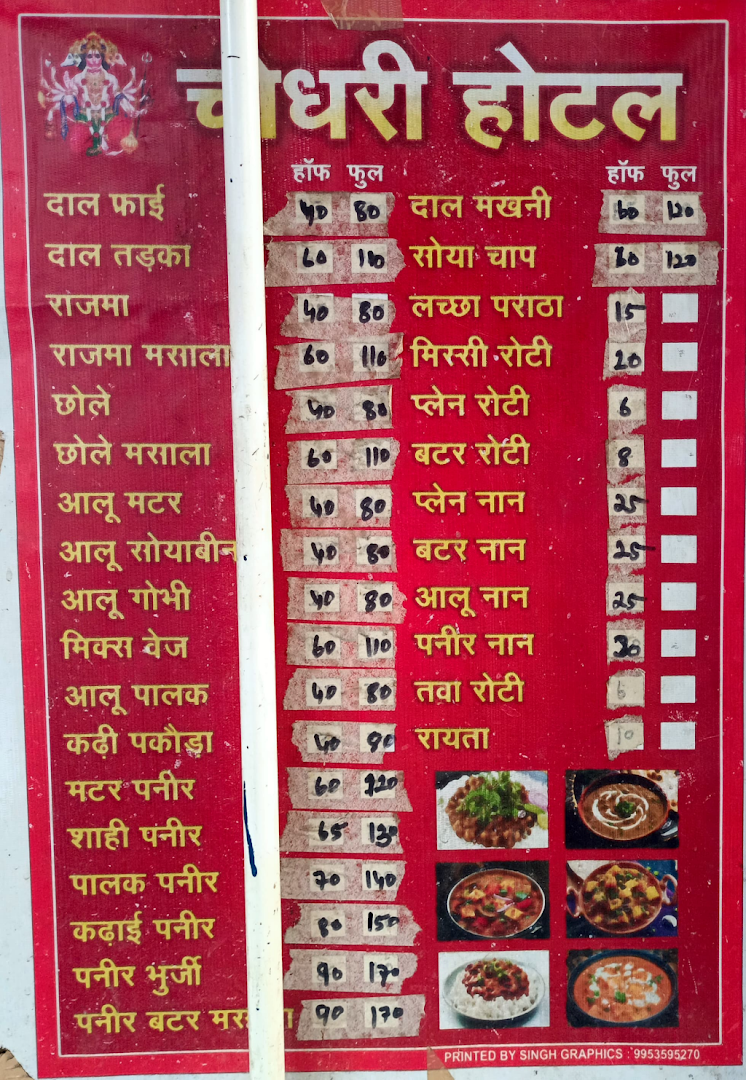 चौधरी होटल
हॉफ फुल
दाल फ्राई 40 80
दाल तड़का 60 110
राजमा 40 80
राजमा मसाला 60 110
छोले 40 80
छोले मसाला 60 110
आलू मटर 40 80
आलू सोयाबीन 40 80
आलू गोभी 40 80
मिक्स वेज 60 110
आलू पालक 40 80
कढ़ी पकौड़ा 40 90
मटर पनीर 60 120
शाही पनीर 65 130
पालक पनीर 70 140
कढ़ाई पनीर 80 150
पनीर भुर्जी 90 170
पनीर बटर मसाला 90 170
हॉफ फुल
दाल मखनी 60 120
सोया चाप 60 120
लच्छा पराठा 15
मिस्सी रोटी 20
प्लेन रोटी 6
बटर रोटी 8
प्लेन नान 25
बटर नान 25
आलू नान 25
पनीर नान 30
तवा रोटी 6
रायता 10
PRINTED BY SINGH GRAPHICS : 9953595270